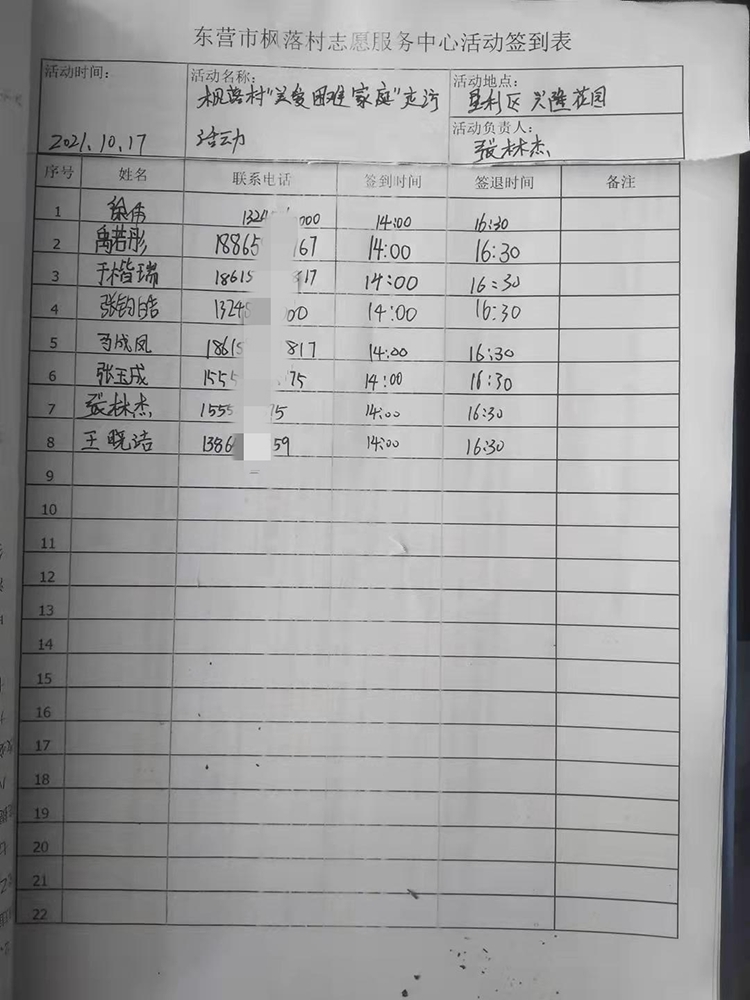 东营市枫落村志愿服务中心活动签到表
活动时间: 活动名称: 活动地点:
枫落村"关爱困难家庭"走访 垦利区 兴隆花园
活动负责人:
2021.10.17 活动 张林杰
序号 姓名 联系电话 签到时间 签退时间 备注
1 徐伟 1324 000 14:00 16:30
2 禹若彤 18865 167 14:00 16:30
3 于楷瑞 18615 817 14:00 16:30
4 张钧皓 13245 00 14:00 16:30
5 成凤 18615 817 14:00 16:30
6 张玉成 1555 75 14:00 16:30
7 张林杰 1555 75 14:00 16:30
8 王晓洁 1386 59 14:00 16:30
9
10
11
12
13
14
15
16
17
18
19
20
21
22